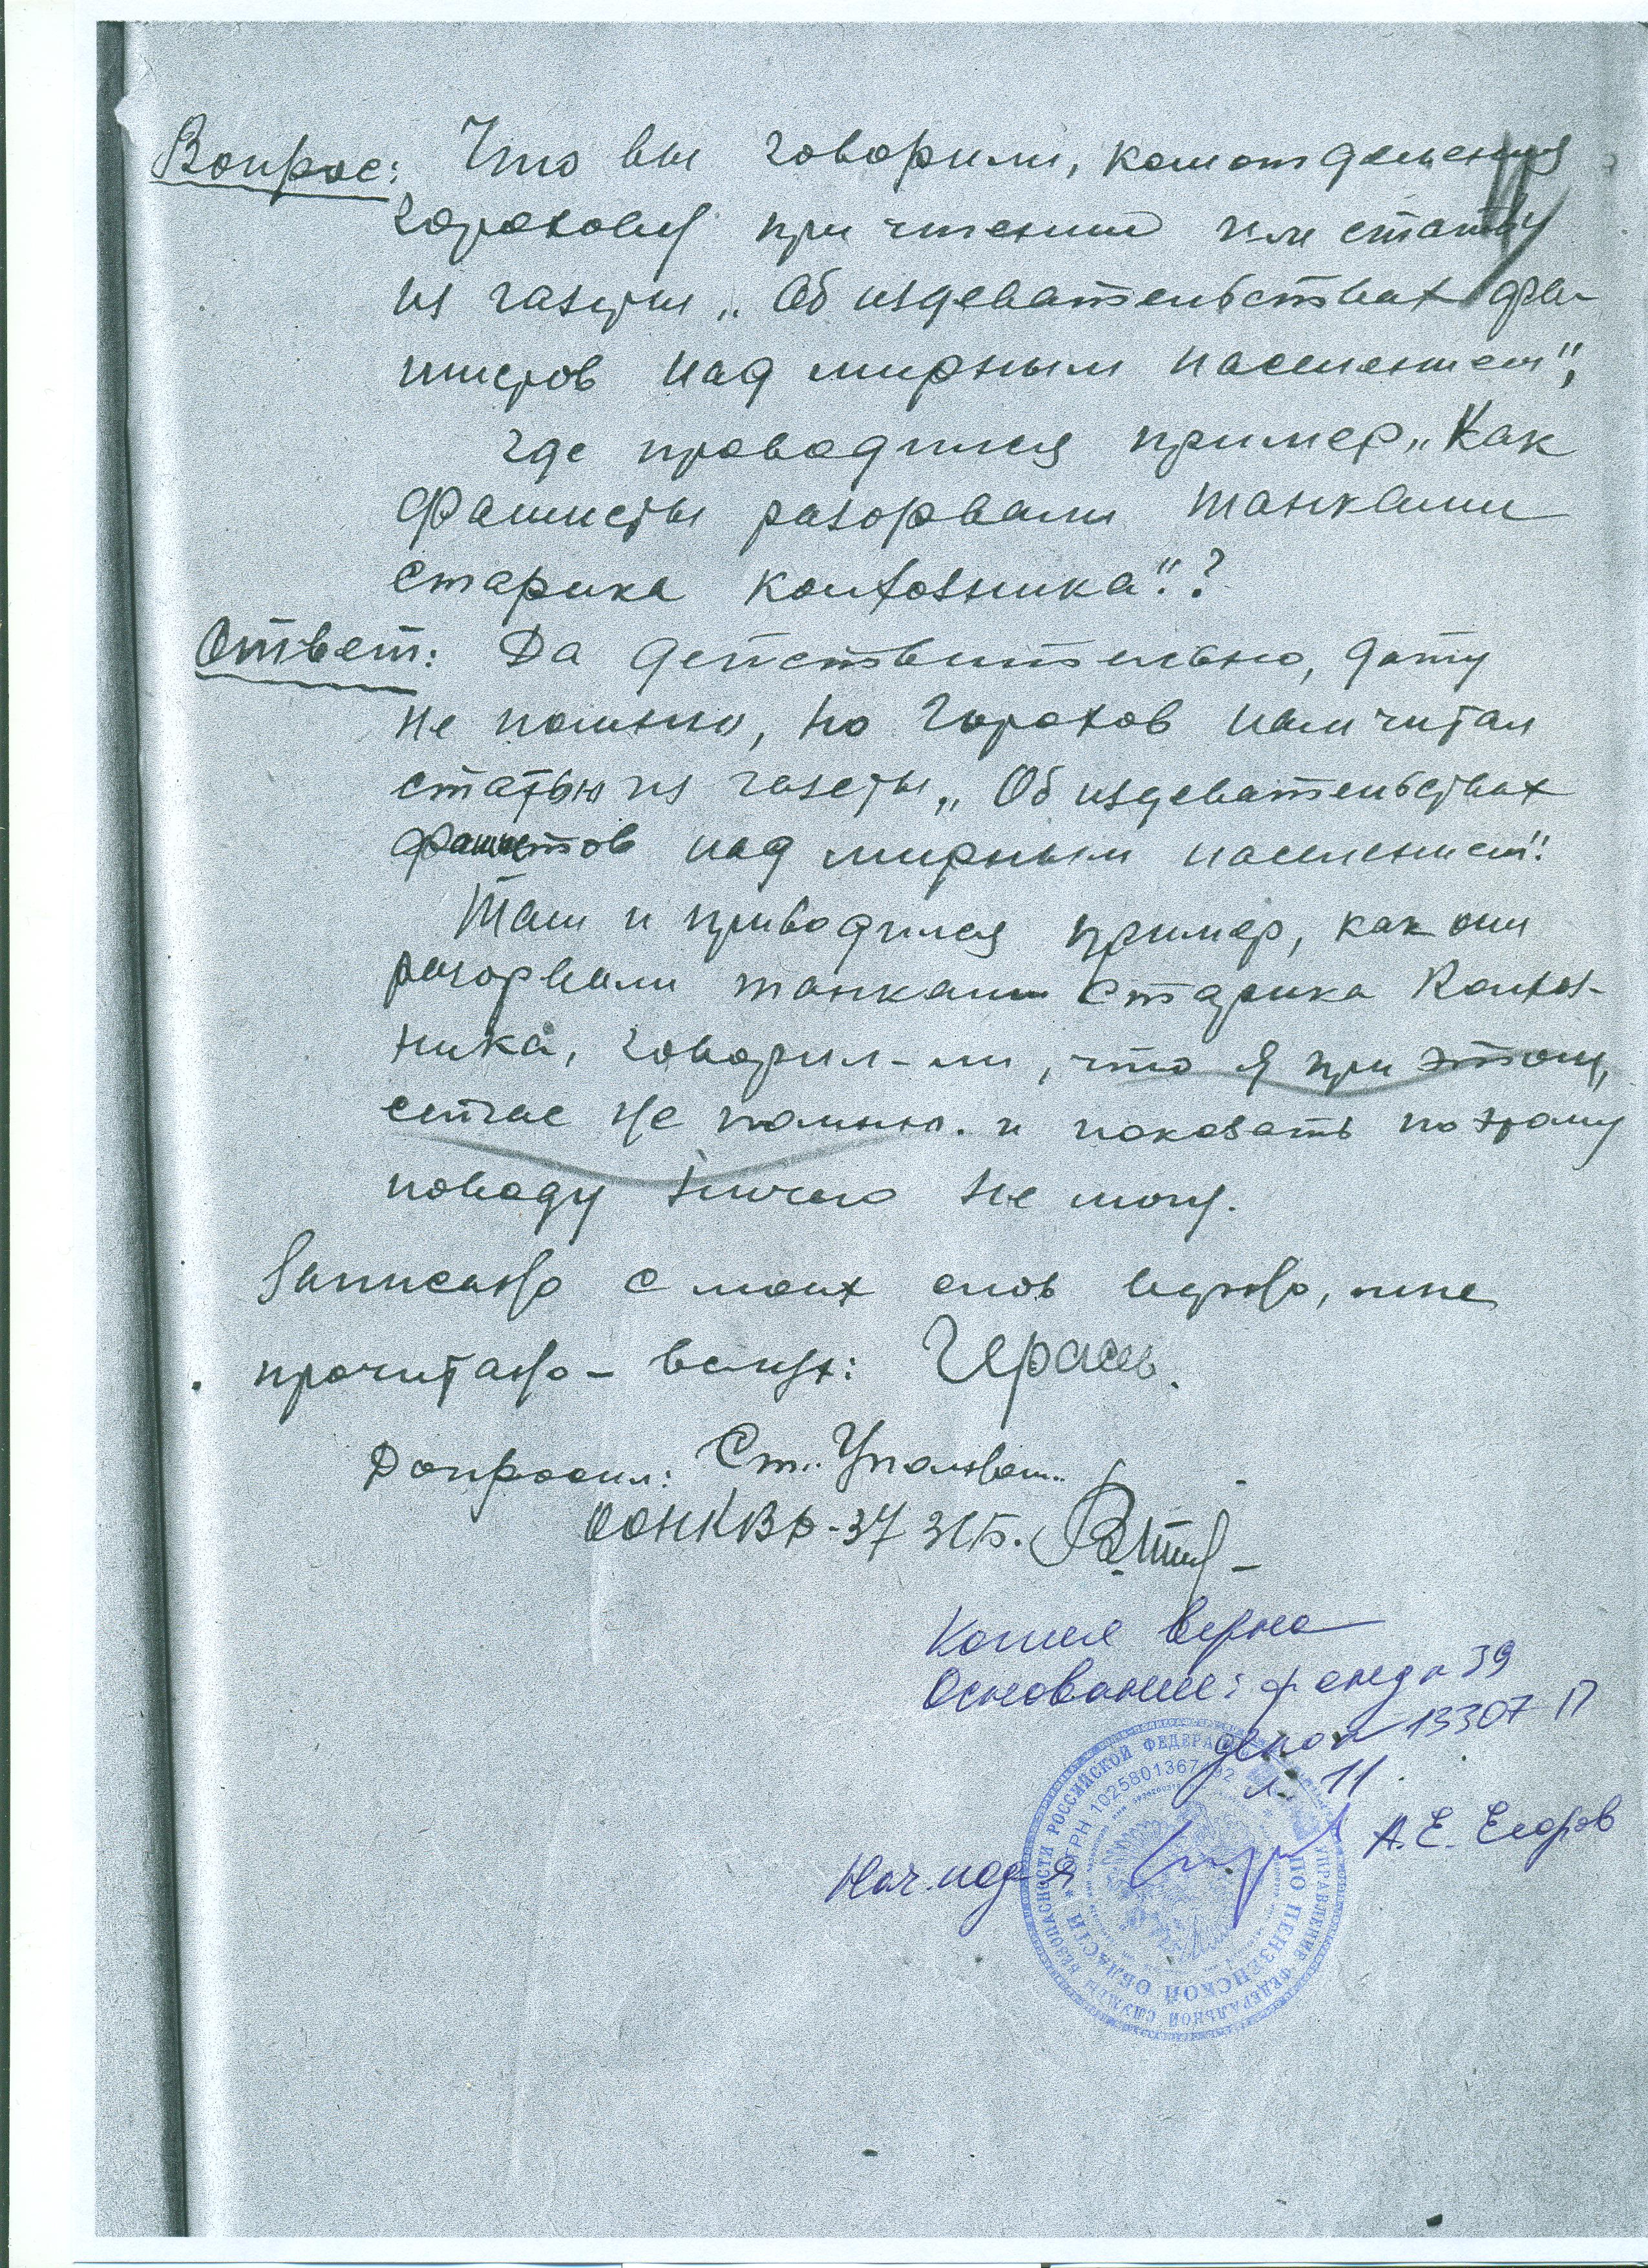 Вопрос: Что вы говорили, ком. отделения
Горохову при чтении им статьи
из газеты „Об издевательствах фа-
шистов над мирным населением",
где проводился пример „Как
фашисты разорвали танками
старика колхозника"?
Ответ: Да действительно, дату
не помню, но Горохов нам читал
статью из газеты „Об издевательствах
фашистов над мирным населением".
Там и приводился пример, как они
разорвали танками старика колхоз-
ника, говорил-ли, что я при этом,
сейчас не помню. и показать по этому
поводу ничего не могу.
Записано с моих слов верно, мне
прочитано – вслух: Герась.
Допросил: Ст. Уполном.
ОО НКВД - 37 ЗСБ.
Копия верна
Основание: фонд 39
дело 13307 П
л. 11.
Нач. под-я А.Е. Егоров
УПРАВЛЕНИЕ ФЕДЕРАЛЬНОЙ СЛУЖБЫ БЕЗОПАСНОСТИ РОССИЙСКОЙ ФЕДЕРАЦИИ
ПО ПЕНЗЕНСКОЙ ОБЛАСТИ * ОГРН